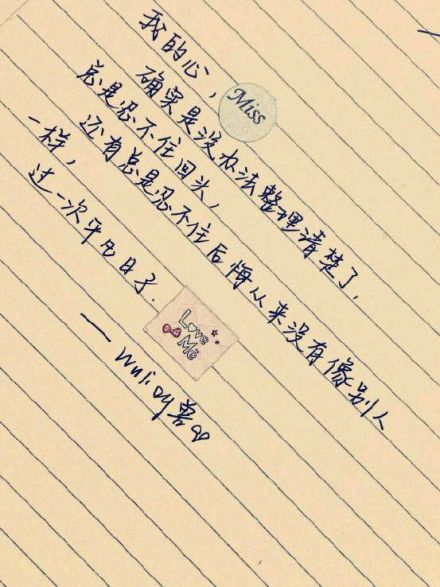 我的心，
Miss
确实是没办法整理清楚了，
总是忍不住回头，
还有总是忍不住后悔从来没有像别人
一样，
过一次平凡日子.
Love
Me